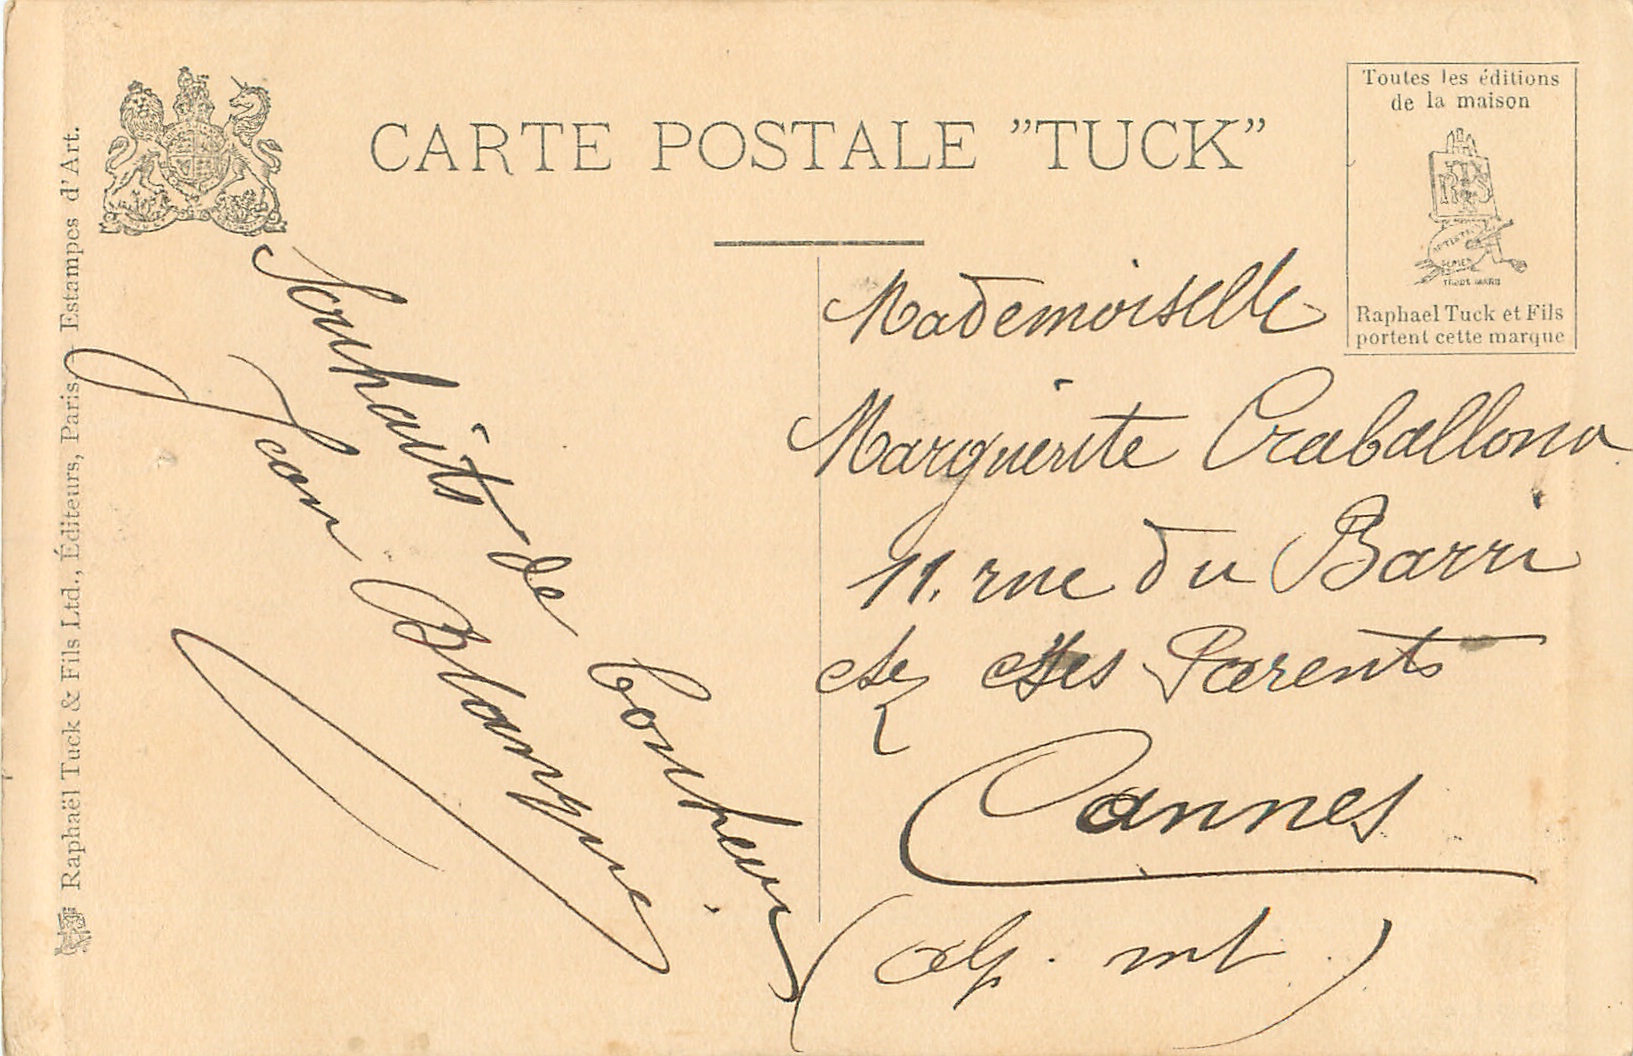 CARTE POSTALE "TUCK"
Toutes les éditions
de la maison
ARTISTIC
SERIES
TRADE MARK
Raphael Tuck et Fils
portent cette marque
Raphaël Tuck & Fils Ltd., Éditeurs, Paris — Estampes d'Art.
Souhaits de Bonheur
Jean Blangue
Mademoiselle
Marguerite Craballona
11. rue du Barri
chez Ses Parents
Cannes
(Alp. mt.)